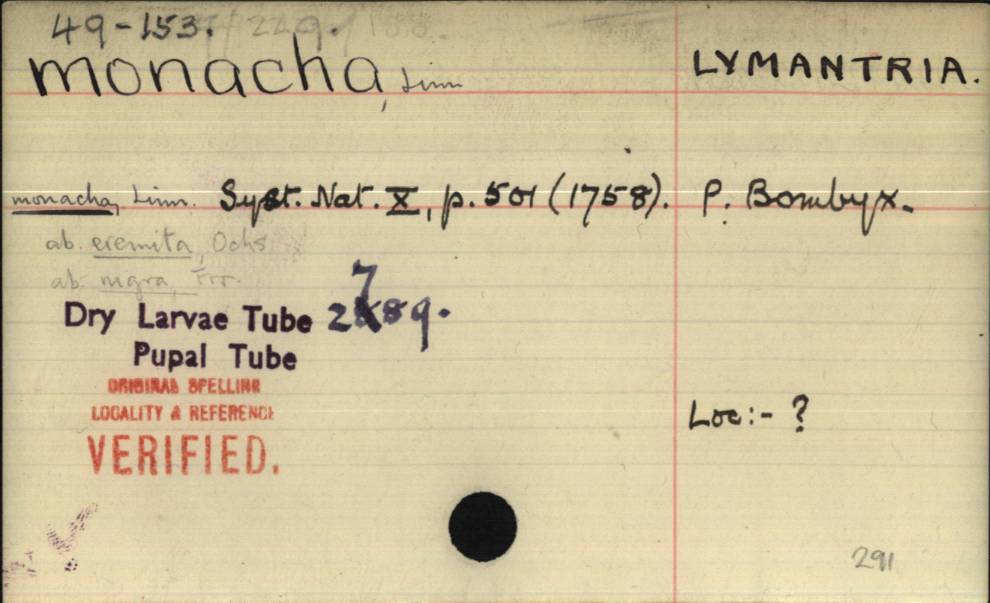 49-153.
monacha, Linn LYMANTRIA.
monacha, Linn. Syst. Nat. X, p. 501 (1758). P. Bombyx.
ab. eremita, Ochs
ab. nigra, Frr.
Dry Larvae Tube 2789.
Pupal Tube
ORIGINAL SPELLING
LOCALITY & REFERENCE
VERIFIED.
Loc:- ?
291